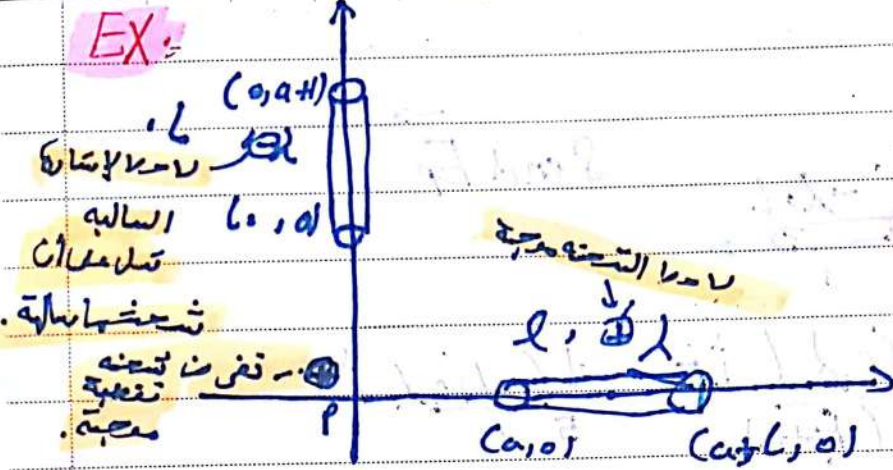 EX:-
(0,a+l)
L,
⊖λ
لاحظ الإشارة
السالبة
(0,a)
تدل على أن
شحنتها سالبة.
لاحظ الشحنة موجبة
l, ⊕λ
نفرض شحنة
نقطية
موجبة.
P
(a,0)
(a+L,0)